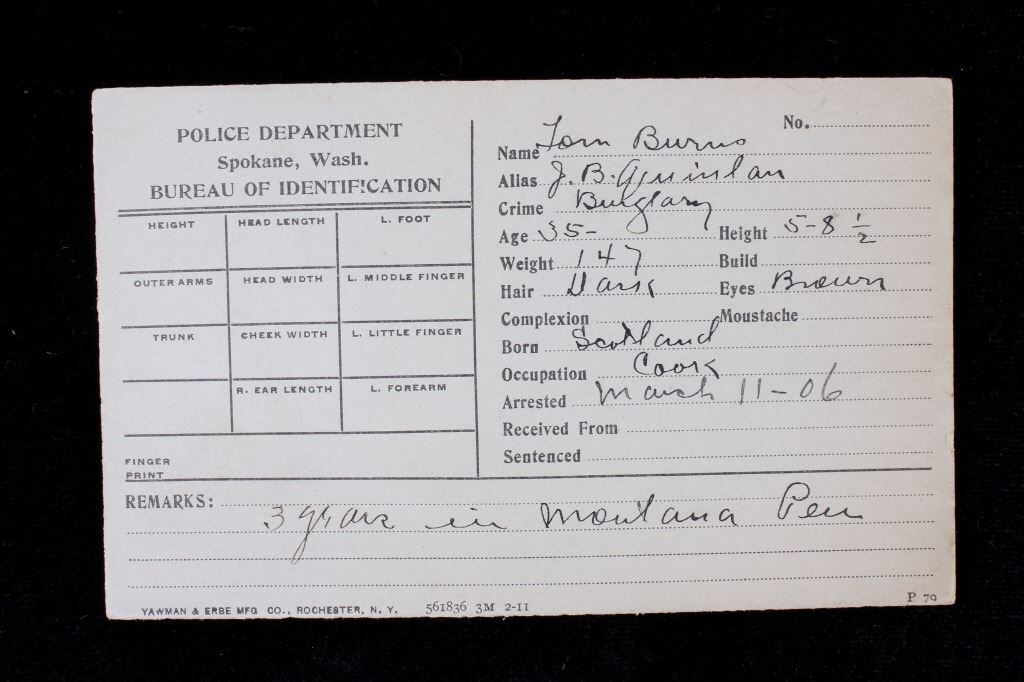 POLICE DEPARTMENT
Spokane, Wash.
BUREAU OF IDENTIFICATION
HEIGHT HEAD LENGTH L. FOOT
OUTER ARMS HEAD WIDTH L. MIDDLE FINGER
TRUNK CHEEK WIDTH L. LITTLE FINGER
R. EAR LENGTH L. FOREARM
FINGER
PRINT
No.
Name Tom Burns
Alias J. B.
Crime Burglary
Age 35- Height 5-8 1/2
Weight 147 Build
Hair Dark Eyes Brown
Complexion Moustache
Born Scotland
Occupation Cook
Arrested March 11-06
Received From
Sentenced
REMARKS: 3 years in Montana Pen
YAWMAN & ERBE MFG CO., ROCHESTER, N. Y. 561836 3M 2-11 P 79